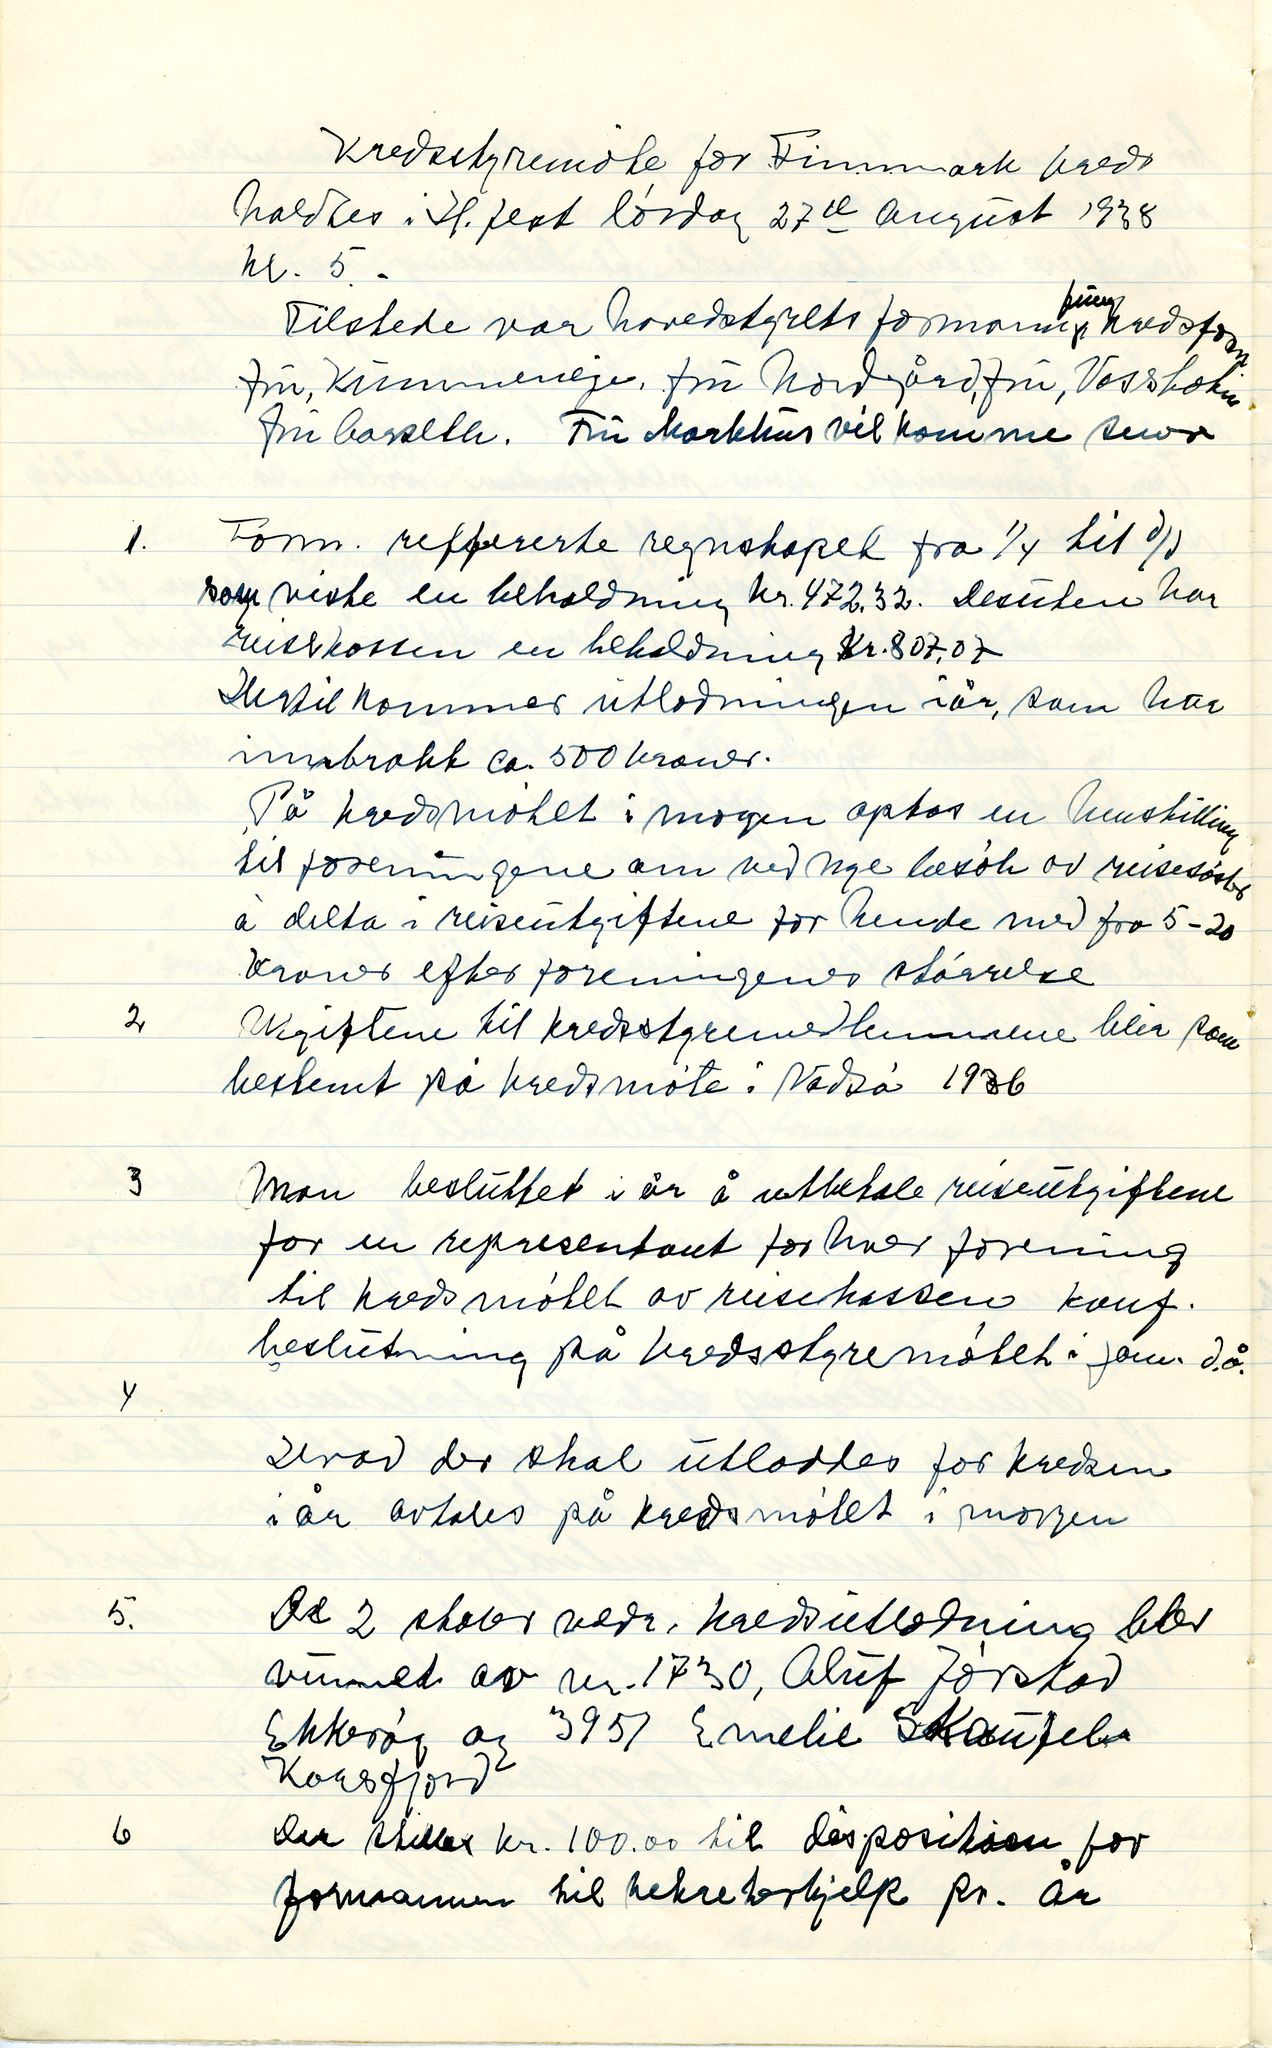 Kredsstyremöte for Finnmark kreds
holdtes i H.fest lördag 27de august 1938
kl. 5.-
Tilstede var hovedstyrets formann, kredsform
frü, Kümmeneje, frü Nordgård, frü, Vassbotn
frü Carseth. Frü Markhüs vil komme
1. Form. reffererte regnskapet fra 1/4 til d/d
som viste en beholdning kr. 472,32. Desüten har
reisekassen en beholdning kr. 807,07
Hertil kommer ütlodningen iår, som har
innbrakt ca. 500 kroner.
På kredsmötet i morgen optas en henstilling
til foreningene om ved nye besök av reisesöster
å delta i reiseütgiftene for hende med fra 5-20
kroner efter foreningenes störrelse
2 Utgiftene til kredsstyremedlemmene blir som
bestemt på kredsmöte i Vadsö 1936
3 Man beslüttet i år å utbetale reiseütgiftene
for en representant for hver forening
til kredsmötet av reisekassen konf.
beslütning på kredsstyremötet i jan. d.å.
4
Hvad der skal ütloddes for kredsen
i år avtales på kredsmötet i morgen
5. De 2 stoler vedr. kredsütlodning blev
vünnet av nr. 1730, Alüf Jörstad
Ekkeröy og 3951 Emelie
Korsfjord
6 Der stilles kr. 100.00 til disposition for
formannen til sekreterhjelp pr. år